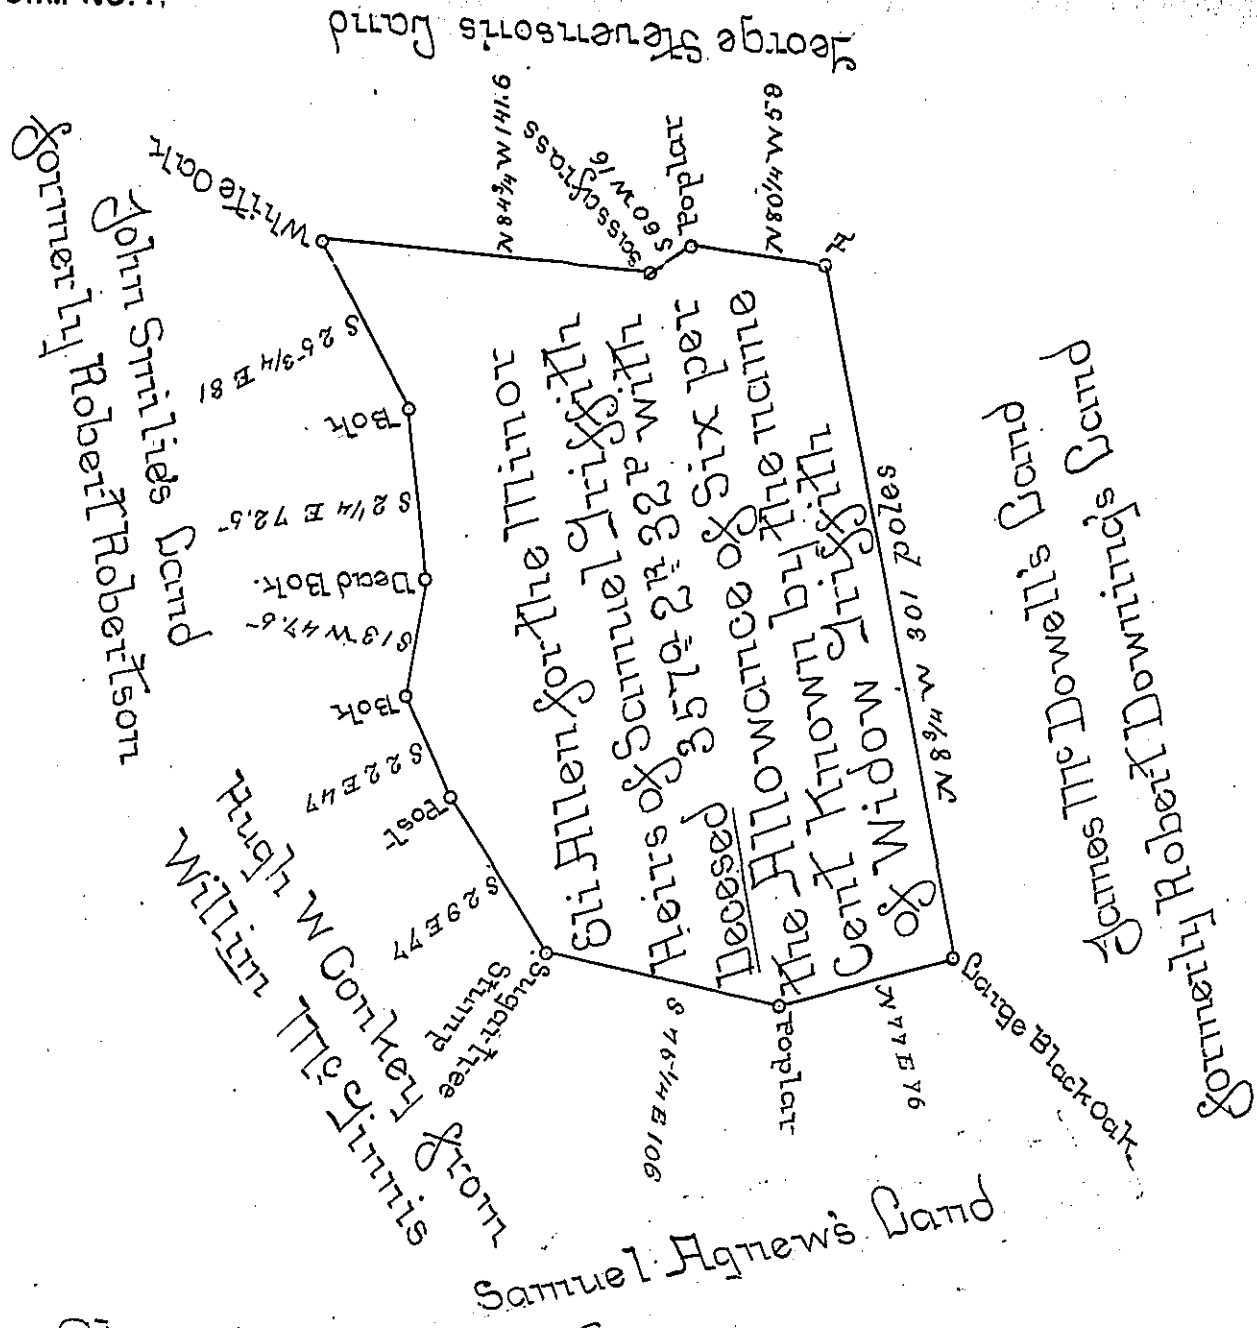 George Stevenson's Land
N 84 3/4 W 141.9
Sasscyfrass
S 60 W 16
Poplar
N 80 1/4 W 59
White Oak
John Smilie's Land
Formerly Robert Robertson
S 25 3/4 E 81
Bok
S 2 1/4 E 72.5
Dead Bok.
S 13 W 47.5
Bok
S 22 E 47
Post
S 29 E 77
Hugh W Conkey From
Willim McGinnis
Sugartree
Stump
Eli Allen for the Minor
Heirs of Samuel Griffith
Decesed 357a 2r 32p with
the Allowance of Six per
Cent Known by the name
of Widow Griffith
N 8 3/4 W 301 poles
James McDowell's Land
Formerly Robert Downing's Land
S 76 1/4 E 106
Poplar
Large Black Oak
Samuel Agnew's Land